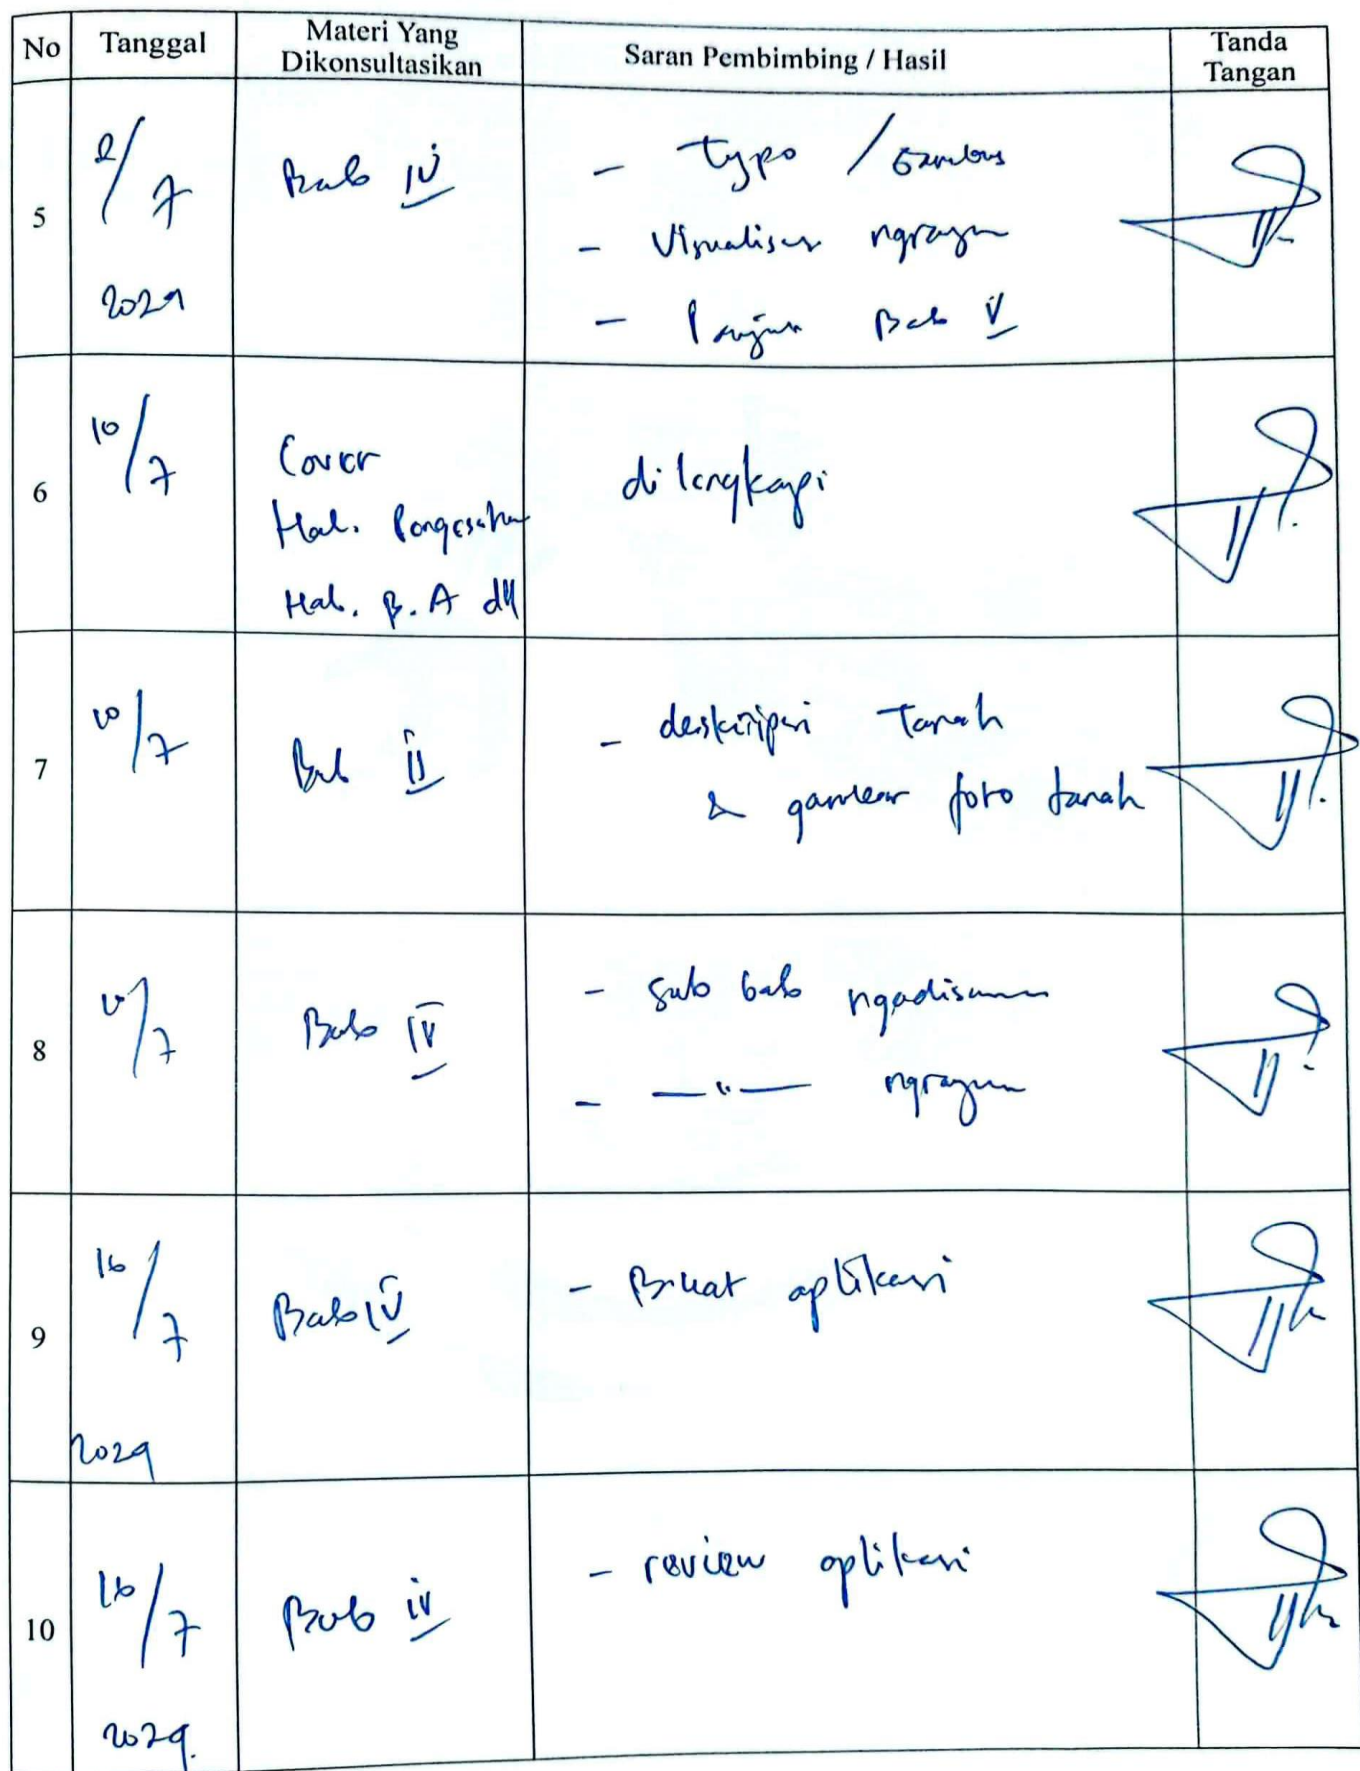 No Tanggal Materi Yang Dikonsultasikan Saran Pembimbing / Hasil Tanda Tangan
5 2/7 2024 Bab IV - typo / Gambar
- Visualisasi ngrayun
- Lanjut Bab V
6 10/7 Cover dilengkapi
Hal. Pengesahan
Hal. B.A dll
7 10/7 Bab II - deskripsi Tanah
& gambar foto tanah
8 10/7 Bab IV - sub bab ngadisanan
- —"— ngrayun
9 16/7 2024 Bab IV - Buat aplikasi
10 16/7 2024. Bab IV - review aplikasi